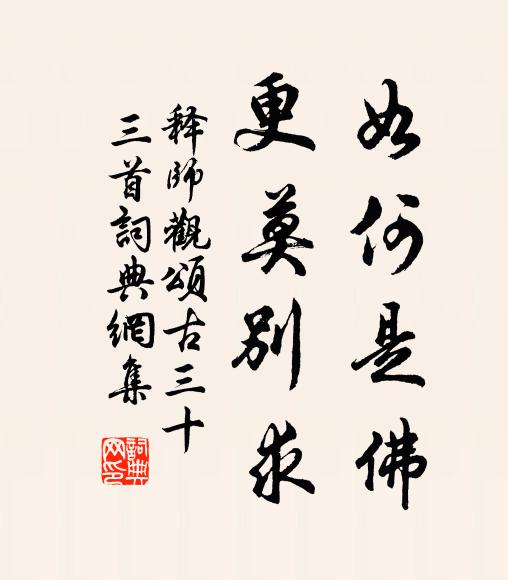 如何是佛
更莫别求
释師觀頌古三十
三首詞典網集
詞典
网印